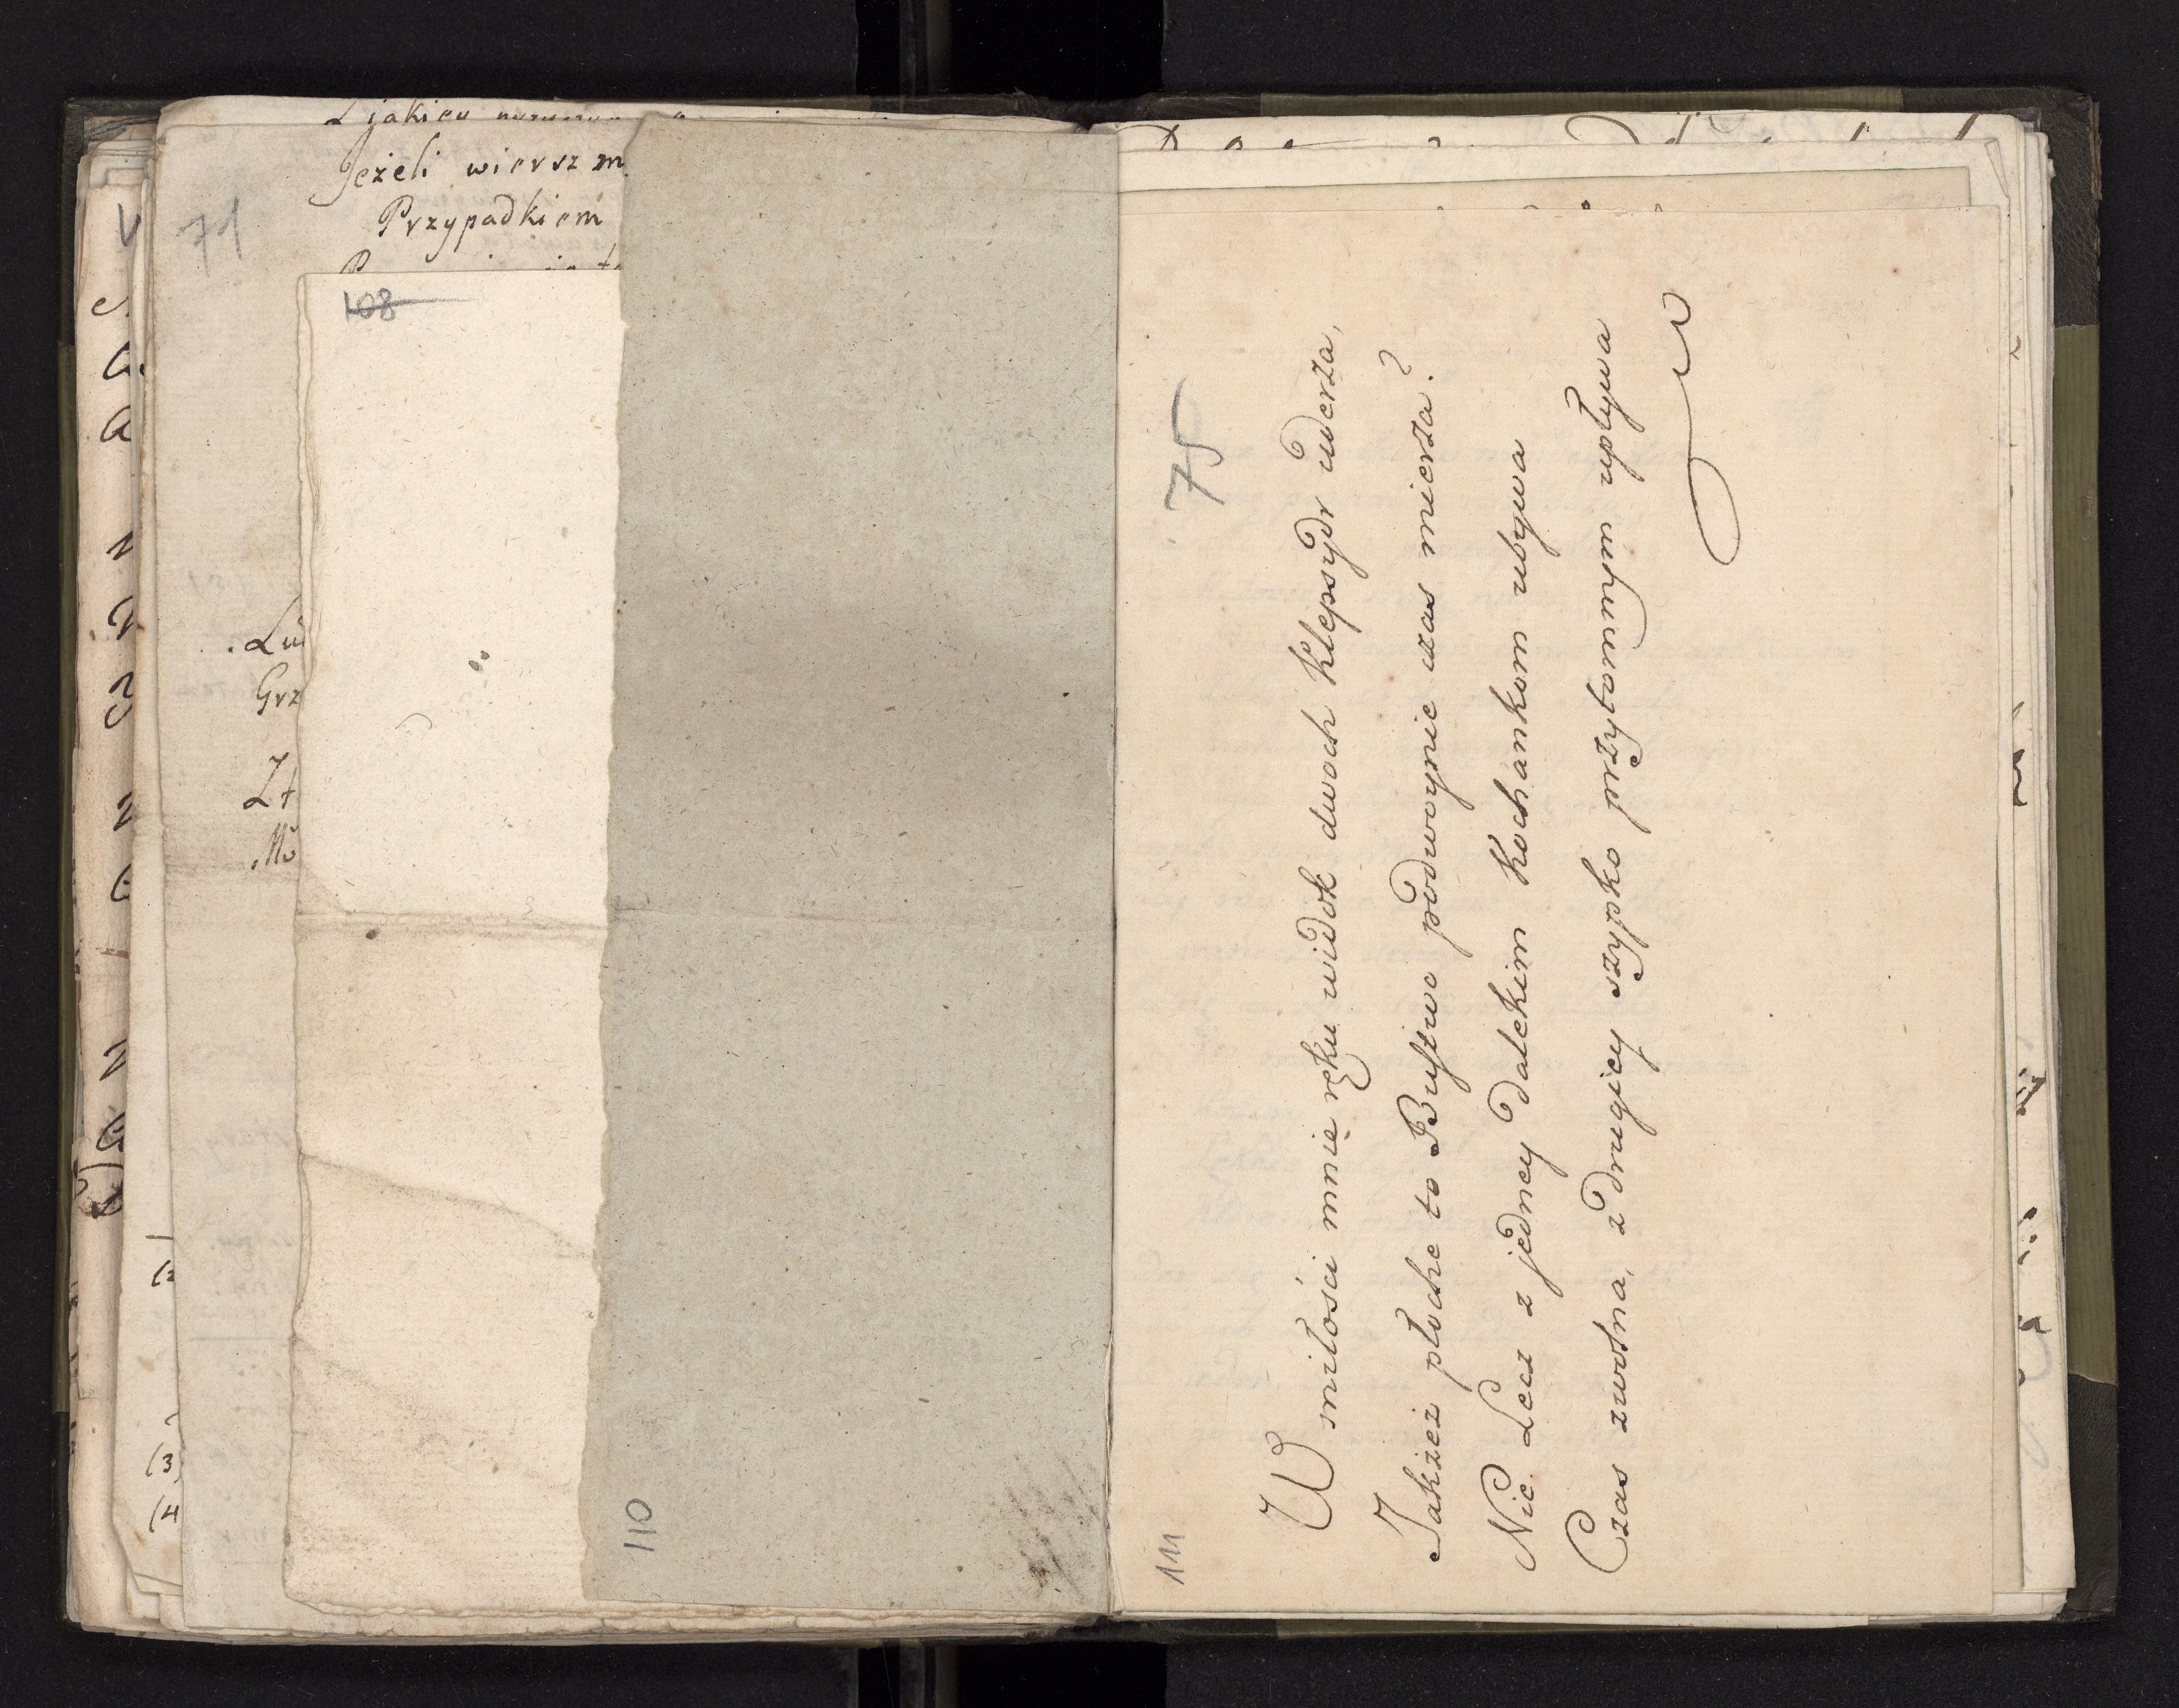 jakiey
Jeżeli wiersz m
Przypadkiem
71
108
Lu
Grz
Zt
Mo
(2
(3
(4
110
75
111
W miłości mnię ręku widok dwoch Klepsydr uderza,
Jakżeż płoche to Bustwo podwoynie czas mierza?
Nie. Lecz z jedney dalekim Kochankom ubywa
Czas zwolna, z drugiey szypko przytomnym upływa